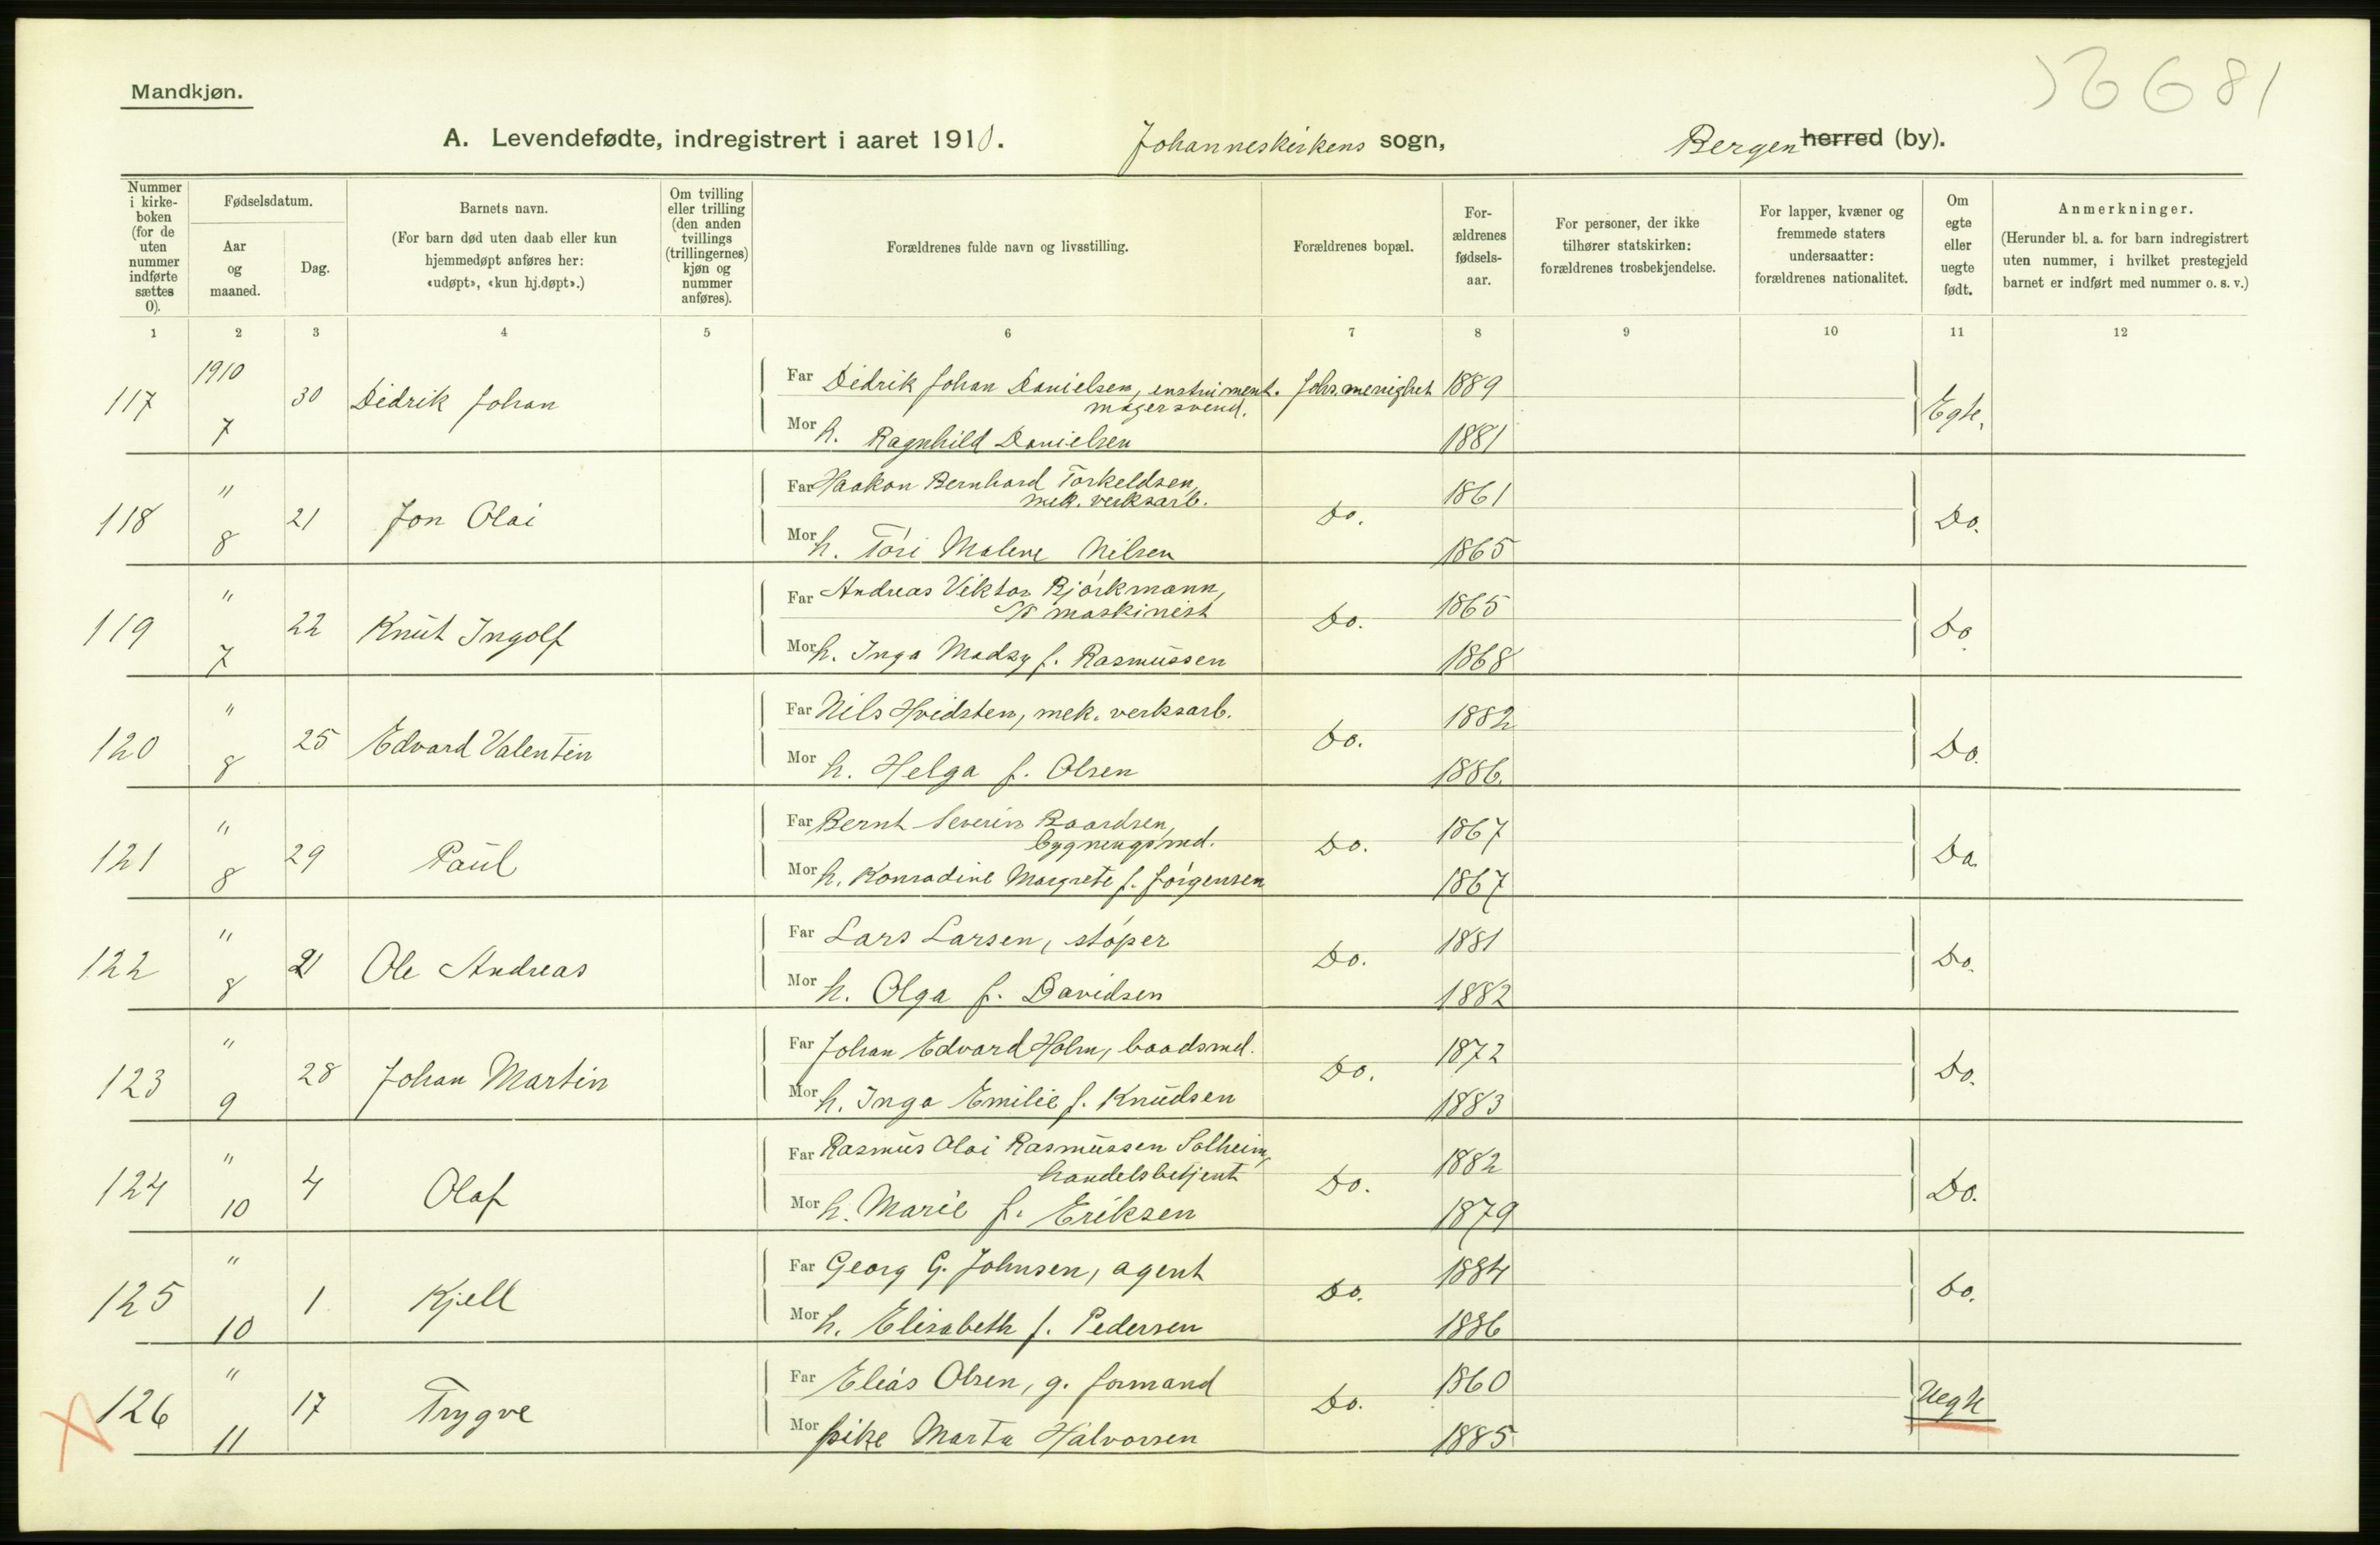 Mandkjøn.
A. Levendefødte, indregistrert i aaret 1910. Johanneskirkens sogn, Bergen herred (by).
Nummer i kirke-boken (for de uten nummer indførte sættes 0).
Fødselsdatum.
Aar og maaned.
Dag.
Barnets navn.
(For barn død uten daab eller kun hjemmedøpt anføres her: «udøpt», «kun hj.døpt».)
Om tvilling eller trilling (den anden tvillings (trillingernes) kjøn og nummer anføres).
Forældrenes fulde navn og livsstilling.
Forældrenes bopæl.
For-ældrenes fødsels-aar.
For personer, der ikke tilhører statskirken: forældrenes trosbekjendelse.
For lapper, kvæner og fremmede staters undersaatter: forældrenes nationalitet.
Om egte eller uegte født.
Anmerkninger.
(Herunder bl. a. for barn indregistrert uten nummer, i hvilket prestegjeld barnet er indført med nummer o. s. v.)
1 2 3 4 5 6 7 8 9 10 11 12
117 1910 7 30 Didrik Johan
Far Didrik Johan Danielsen, instrument. magersvend. Johs. menighet 1889 Egte.
Mor h. Ragnhild Danielsen 1881
118 " 8 21 Jon Olai
Far Haakon Bernhard Torkeldsen, mek. verksarb. Do. 1861 Do.
Mor h. Tóri Malene Nilsen 1865
119 " 7 22 Knut Ingolf
Far Andreas Viktor Bjórkmann, S/S maskinist Do. 1865 Do
Mor h. Inga Madsy f. Rasmussen 1868
120 " 8 25 Edvard Valentin
Far Nils Hvidsten, mek. verksarb. Do. 1882 Do.
Mor h. Helga f. Olsen 1886.
121 " 8 29 Paul
Far Bernt Severin Baardsen, bygningsmd. Do. 1867 Do.
Mor h. Konradine Margrete f. Jórgensen 1867
122 " 8 21 Ole Andreas
Far Lars Larsen, stóper Do. 1881 Do.
Mor h. Olga f. Davidsen 1882
123 " 9 28 Johan Martin
Far Johan Edvard Holm, baadsmd. Do. 1872 Do.
Mor h. Inga Emilie f. Knudsen 1883
124 " 10 4 Olaf
Far Rasmus Olai Rasmussen Solheim, handelsbetjent Do. 1882 Do.
Mor h. Marie f. Eriksen 1879
125 " 10 1 Kjell
Far Georg G. Johnsen, agent Do. 1884 Do.
Mor h. Elisabeth f. Pedersen 1886
126 " 11 17 Trygve
Far Elias Olsen, g. formand Do. 1860 Uegte
Mor pike Marta Halvorsen 1885